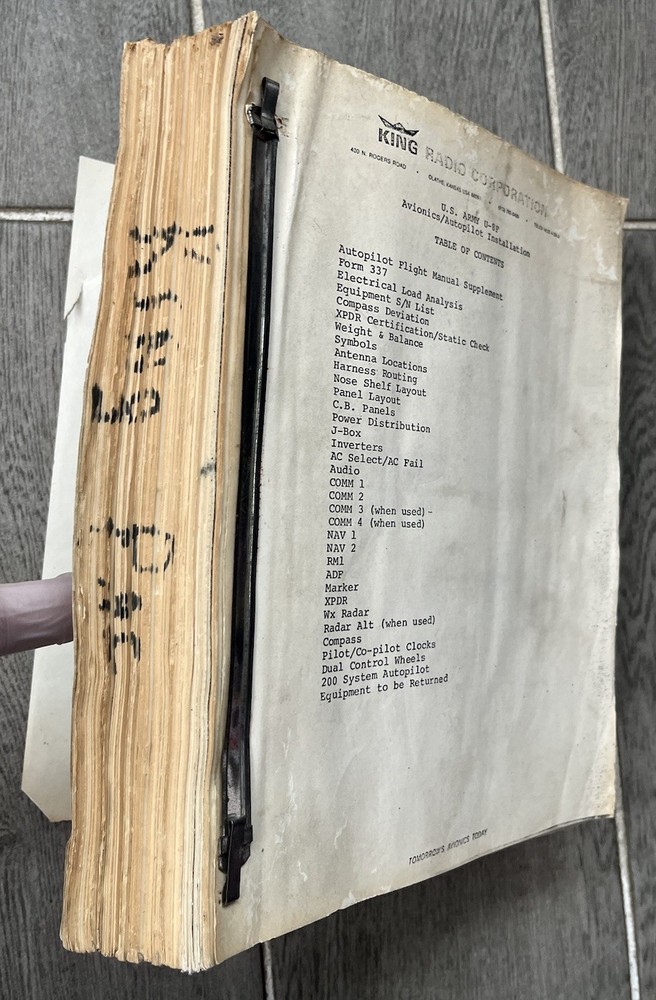 KING RADIO CORPORATION
400 N. ROGERS ROAD • OLATHE, KANSAS USA
U.S. ARMY U-8F
Avionics/Autopilot Installation
TABLE OF CONTENTS
Autopilot Flight Manual Supplement
Form 337
Electrical Load Analysis
Equipment S/N List
Compass Deviation
XPDR Certification/Static Check
Weight & Balance
Symbols
Antenna Locations
Harness Routing
Nose Shelf Layout
Panel Layout
C.B. Panels
Power Distribution
J-Box
Inverters
AC Select/AC Fail
Audio
COMM 1
COMM 2
COMM 3 (when used)-
COMM 4 (when used)
NAV 1
NAV 2
RM1
ADF
Marker
XPDR
Wx Radar
Radar Alt (when used)
Compass
Pilot/Co-pilot Clocks
Dual Control Wheels
200 System Autopilot
Equipment to be Returned
TOMORROW'S AVIONICS TODAY
KING